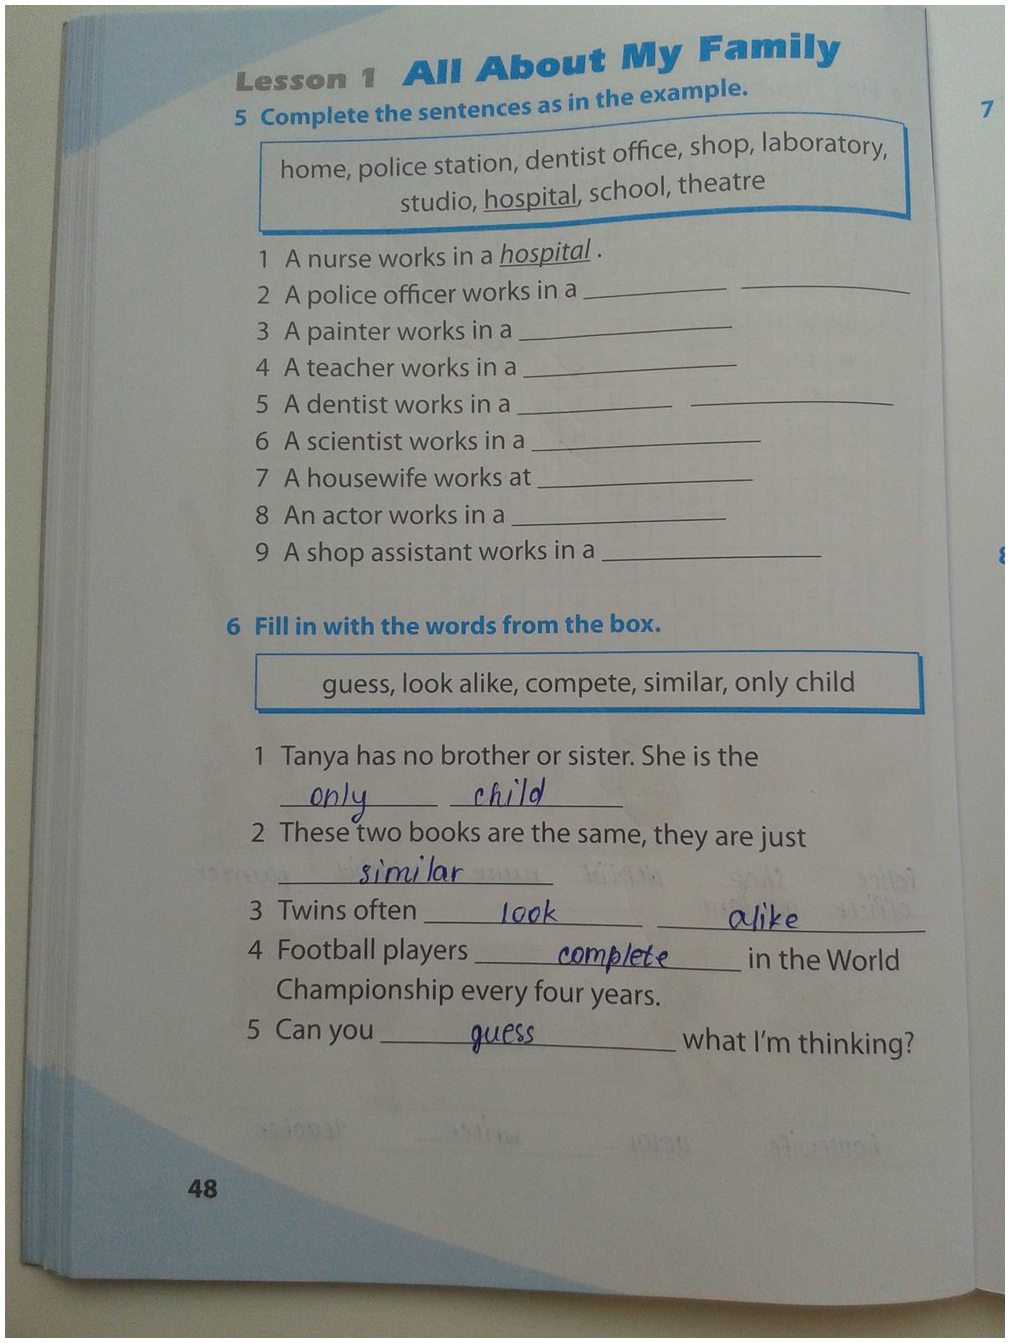 Lesson 1 All About My Family
5 Complete the sentences as in the example.
7
home, police station, dentist office, shop, laboratory,
studio, hospital, school, theatre
1 A nurse works in a hospital .
2 A police officer works in a
3 A painter works in a
4 A teacher works in a
5 A dentist works in a
6 A scientist works in a
7 A housewife works at
8 An actor works in a
9 A shop assistant works in a
6 Fill in with the words from the box.
guess, look alike, compete, similar, only child
1 Tanya has no brother or sister. She is the
only child
2 These two books are the same, they are just
similar
3 Twins often look alike
4 Football players complete in the World
Championship every four years.
5 Can you guess what I'm thinking?
48